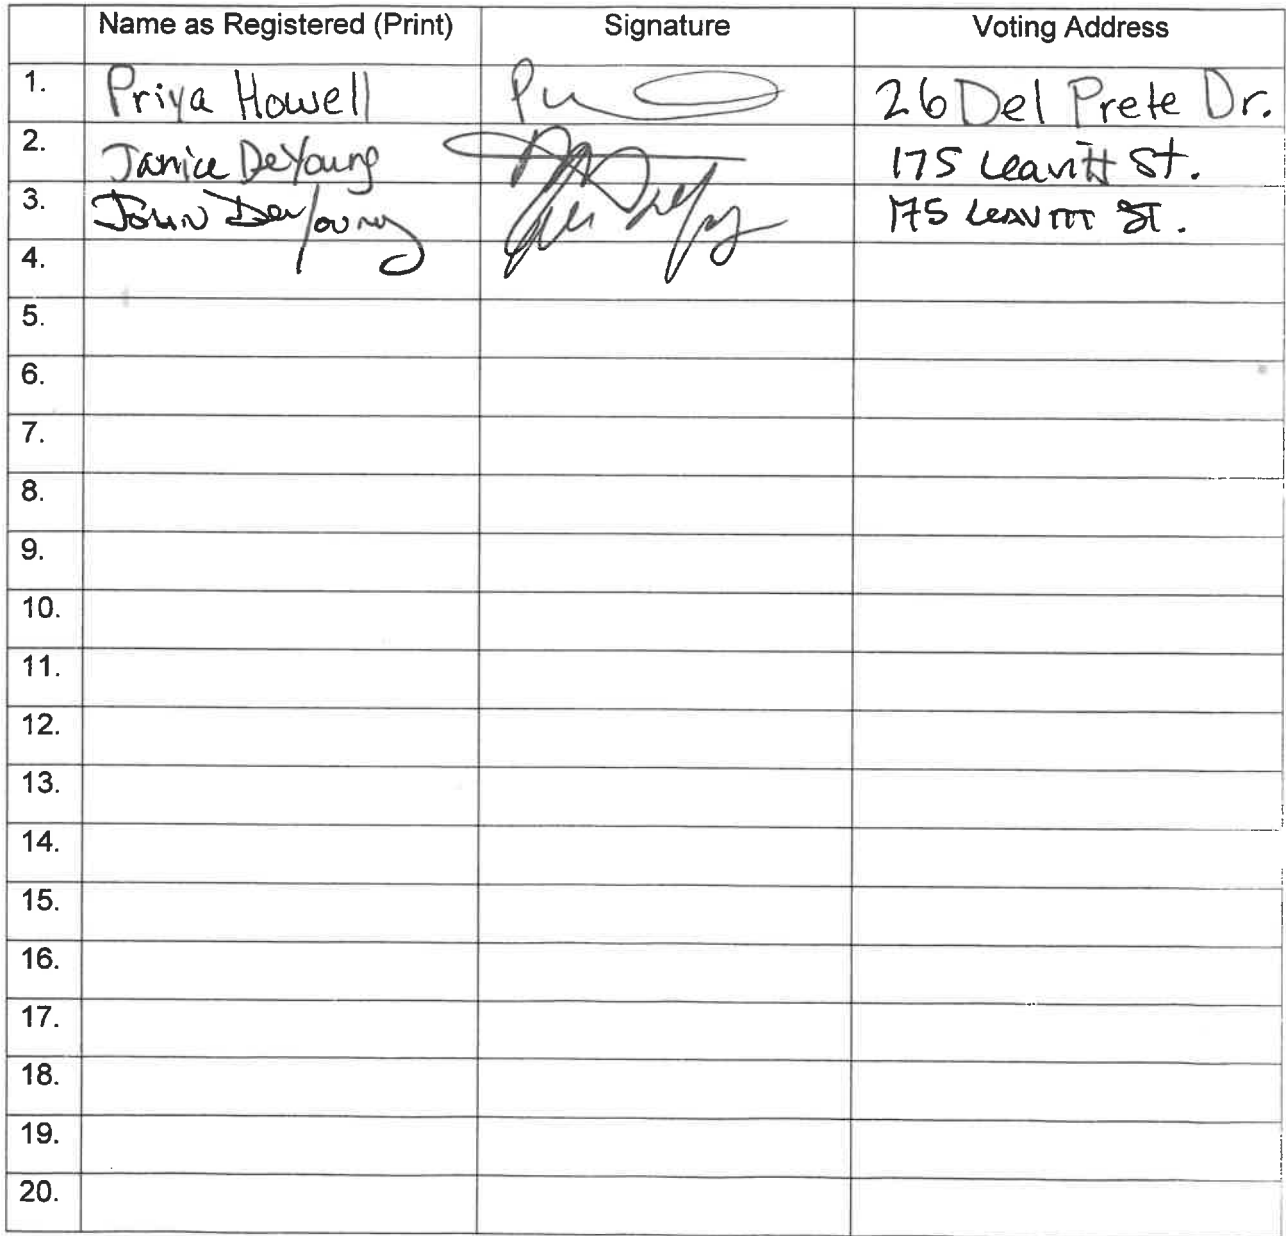 Name as Registered (Print) Signature Voting Address
1. Priya Howell 26 Del Prete Dr.
2. Janice DeYoung 175 Leavitt St.
3. John DeYoung 175 LEAVITT ST.
4.
5.
6.
7.
8.
9.
10.
11.
12.
13.
14.
15.
16.
17.
18.
19.
20.